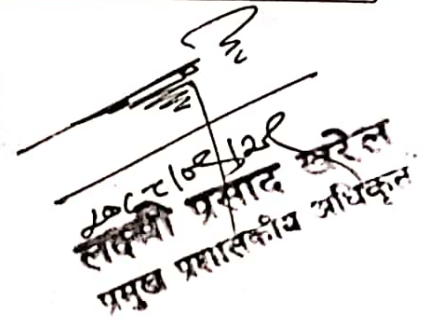 २०८२|०९|२९
लक्ष्मी प्रसाद खरेल
प्रमुख प्रशासकीय अधिकृत